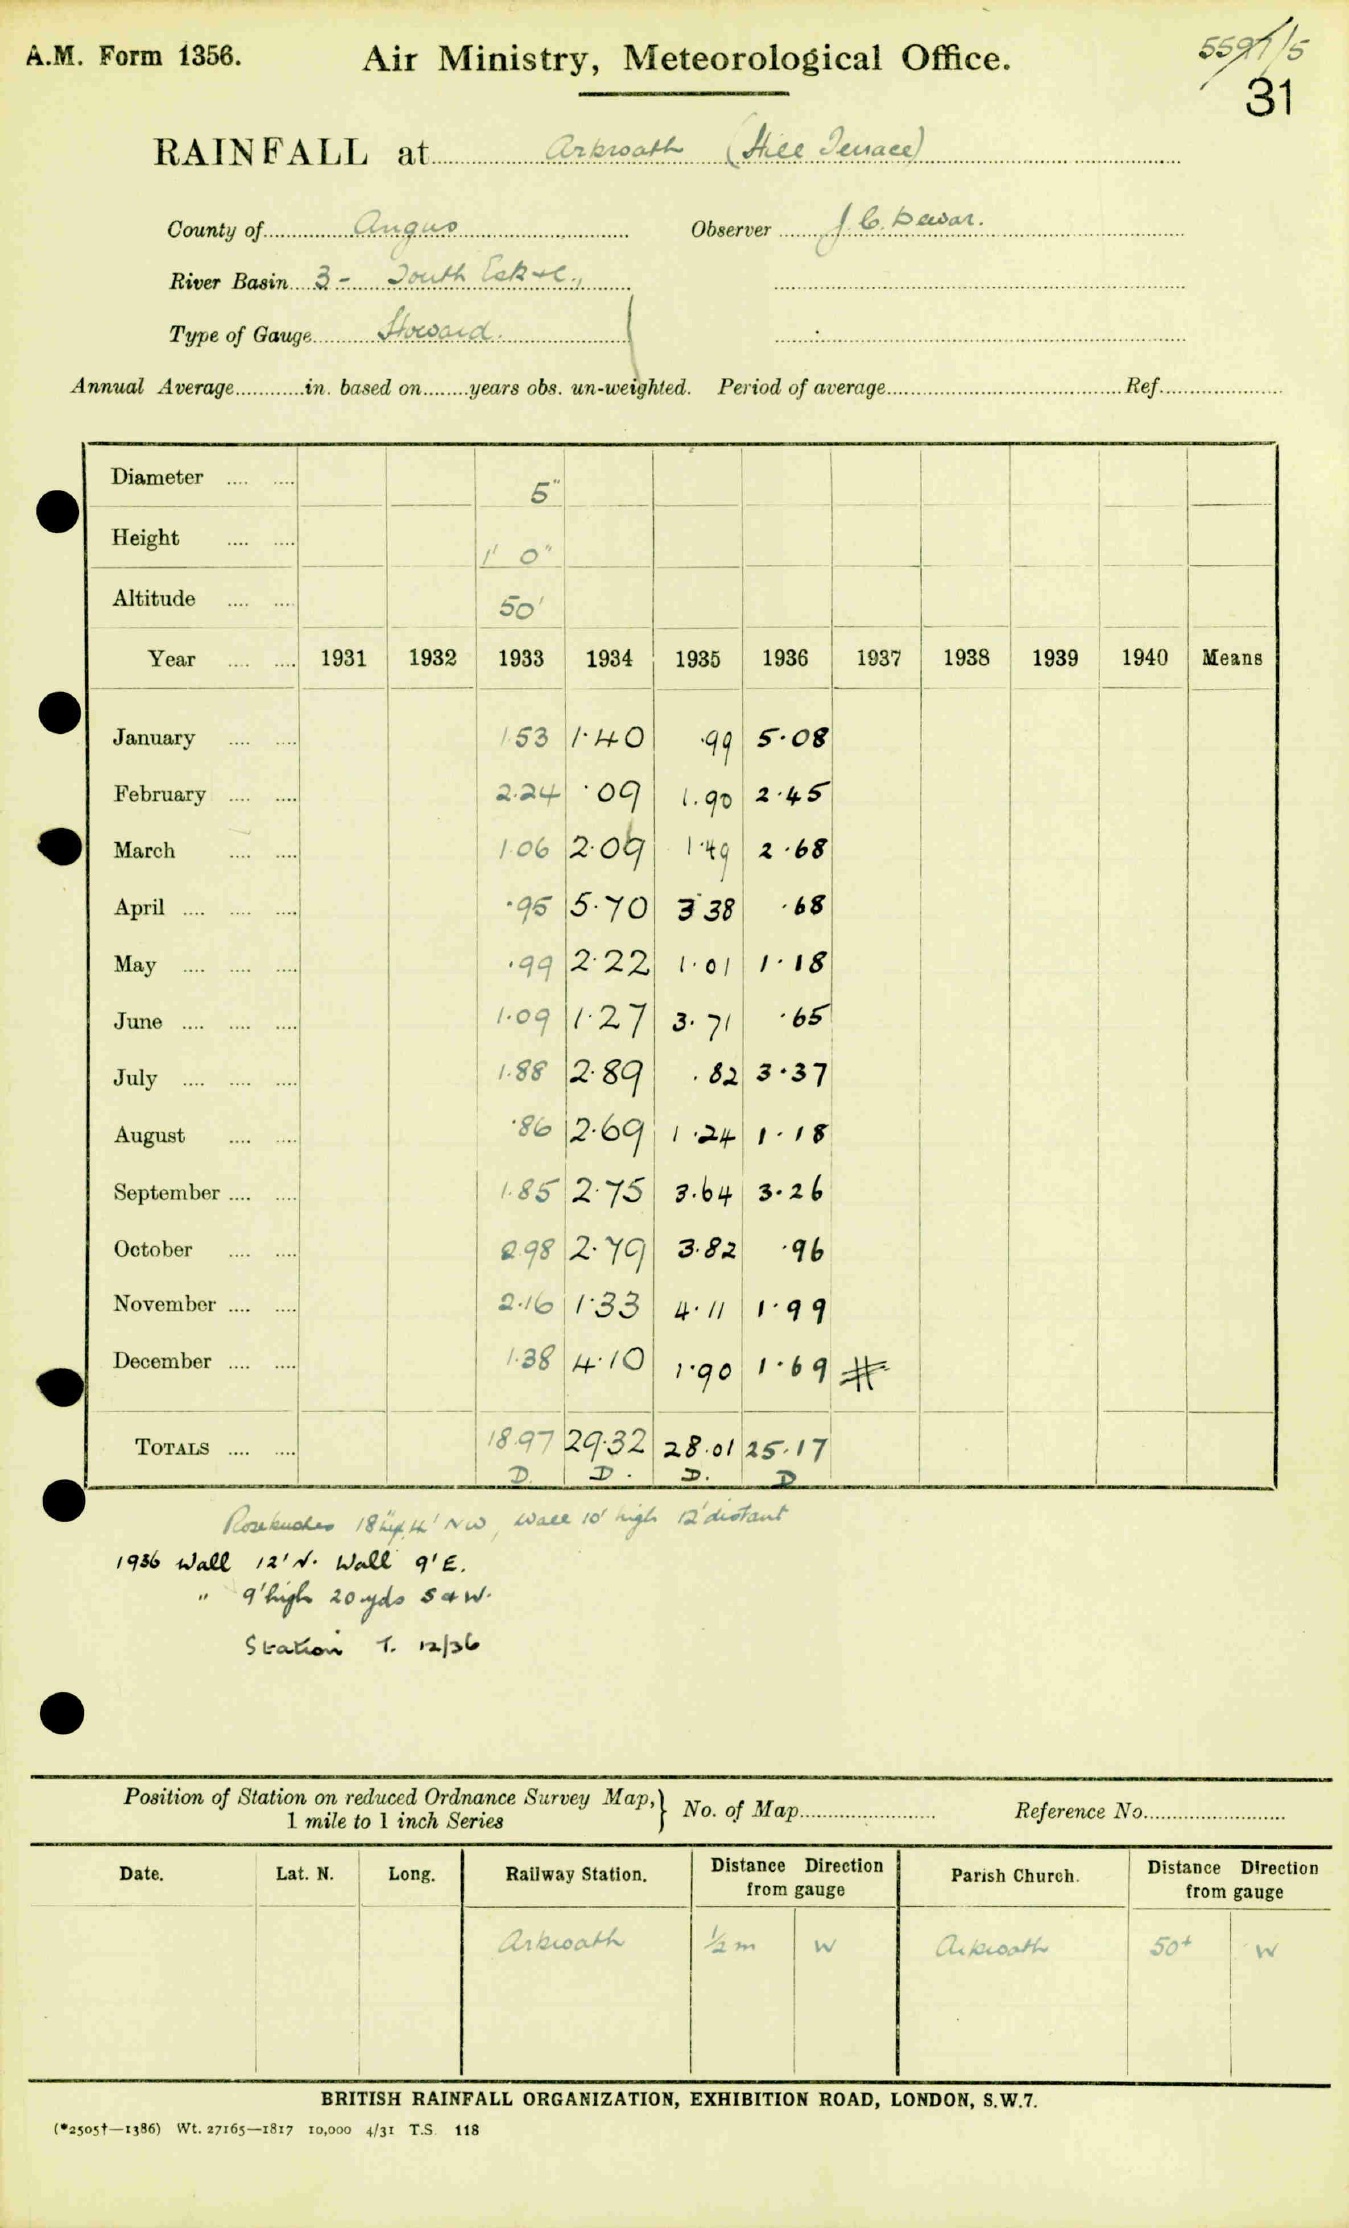 A.M. Form 1356.
Air Ministry, Meteorological Office.
5597/5
31
RAINFALL at Arbroath (Hill Terrace)
County of Angus Observer J. C. Dewar.
River Basin 3 - South Esk &c.,
Type of Gauge Howard.
Annual Average............in. based on........years obs. un-weighted. Period of average........ Ref........
Diameter .... .... 5"
Height .... .... 1' 0"
Altitude .... .... 50'
Year .... .... 1931 1932 1933 1934 1935 1936 1937 1938 1939 1940 Means
January .... .... 1.53 1.40 .99 5.08
February .... .... 2.24 .09 1.90 2.45
March .... .... 1.06 2.09 1.49 2.68
April .... .... .... .95 5.70 3.38 .68
May .... .... .... .99 2.22 1.01 1.18
June .... .... .... 1.09 1.27 3.71 .65
July .... .... .... 1.88 2.89 .82 3.37
August .... .... .86 2.69 1.24 1.18
September .... .... 1.85 2.75 3.64 3.26
October .... .... 2.98 2.79 3.82 .96
November .... .... 2.16 1.33 4.11 1.99
December .... .... 1.38 4.10 1.90 1.69 #
TOTALS .... .... 18.97 29.32 28.01 25.17
D. D. D. D
Rosebushes 18" 4' NW, Wall 10' high 12' distant
1936 Wall 12' N. Wall 9' E.
" 9' high 20 yds S & W.
Station T. 12/36
Position of Station on reduced Ordnance Survey Map, } No. of Map........ Reference No........
1 mile to 1 inch Series
Date. Lat. N. Long. Railway Station. Distance Direction from gauge Parish Church. Distance Direction from gauge
Arbroath ½ m W Arbroath 50+ W
BRITISH RAINFALL ORGANIZATION, EXHIBITION ROAD, LONDON, S.W.7.
(*2505†—1386) Wt. 27165—1817 10,000 4/31 T.S. 118